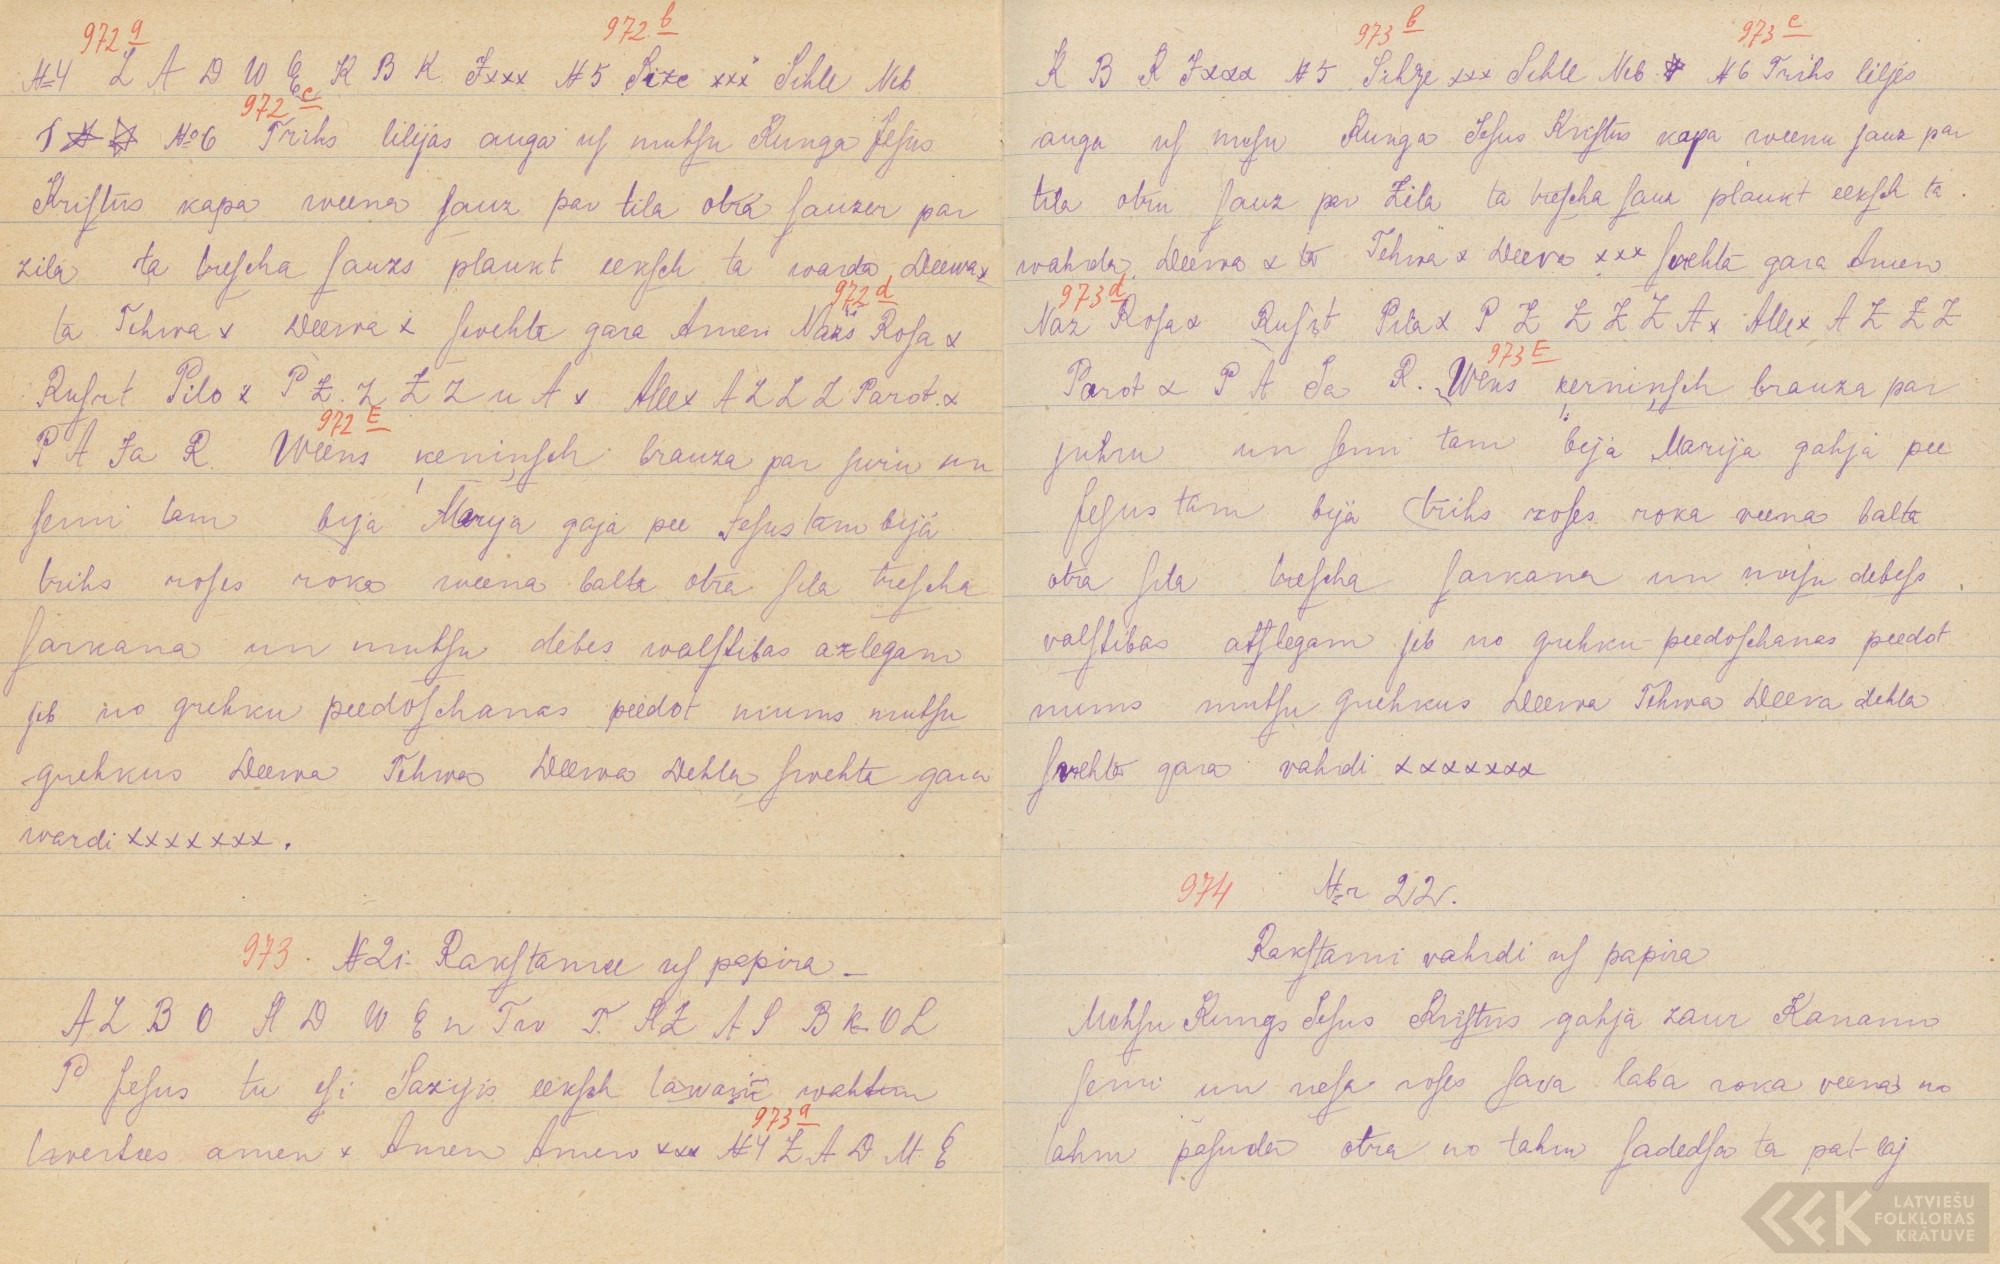 972 a 972 b
№4 Z A D W E K B K Jxxx №5 Size xxx Sihle Neb
972 c
T №6 Trihs lilijas auga uſ muhſu Kunga Jeſus
Kriſtus kapa weena ſauz par tila otra ſauzer par
zila ta treſcha ſauzs plaukt eekſch ta warda Deewa x
972 d
ta Tehwa x Deewa x ſwehta gara Amen Nazs Roſa x
Ruſrt Pilo x P Z. Z Z Z u A x Allex A Z Z Z Parot x
972 E
P A Ja R. Weens ķeniņſch brauza par juru un
ſemi tam bija Marija gaja pee Jeſus tam bija
trihs roſes roka weena balta otra ſila treſcha
ſarkana un muhſu debes walſtibas azlegam
jeb no grehku peedoſchanas peedot mums muhſu
grehkus Deewa Tehwa Deewa Dehla ſwehta gara
wardi xxxxxxx.
973. №21. Rakſtamee uſ papira –
A Z B O A D W E n Tw T. A Z A S B K O L
P Jeſus tu eſi Sazijis eekſch wahtim
973 a
amen x Amen Amen xxx №4 Z A D M E
973 b 973 c
K B R Jxxx №5 Sihze xxx Sihle Neb №6 Trihs liljes
auga uſ muſu Kunga Jeſus Kriſtus kapa weenu ſauz par
tila otru ſauz par Zila ta treſcha ſauz plaukt eekſch ta
wahrda Deewa x ta Tehwa x Deeva xxx ſwehta gara Amen
973 d
Naz Roſa x Ruſrt Pila x P Z Z Z Z A x Allex A Z Z Z
973 E
Parot x P A Ja R. Weens ķerniņſch brauza par
juhru un ſemi tam bija Marija gahja pee
Jeſus tam bija trihs roſes roka veena balta
otra ſila treſcha ſarkana un muſu debeſs
valſtibas atſlegam jeb no grehku peedoſchanas peedot
mums muhſu grehkus Deewa Tehwa Deeva dehla
ſwehta gara vahrdi xxxxxxx
974 №r 22.
Rakſtami vahrdi uſ papira
Muhſu Kungs Jeſus Kriſtus gahja zaur Kananu
ſemi un neſa roſes ſava laba roka veena no
tahm paſuda otra no tahm ſadedſa ta pat laj
LATVIEŠU
FOLKLORAS
KRĀTUVE